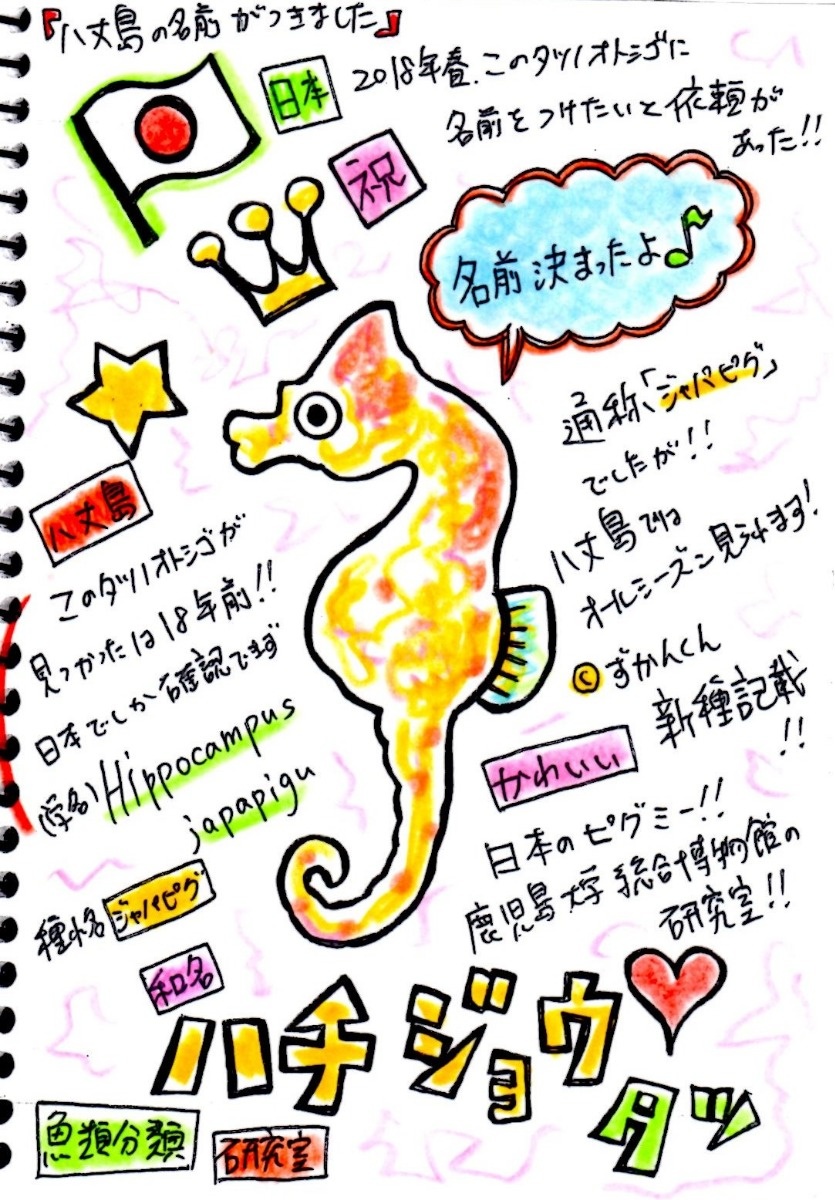 『八丈島の名前がつきました』
日本
2018年春、このタツノオトシゴに
名前をつけたいと依頼が
あった!!
祝
名前決まったよ♪
通称「ジャパピグ」
でしたが!!
八丈島では
オールシーズン見られます!
八丈島
このタツノオトシゴが
見つかったは18年前!!
日本でしか確認できず
(学名)Hippocampus
japapigu
©ずかんくん
新種記載
!!
かわいい
日本のピグミー!!
鹿児島大学総合博物館の
研究室!!
種小名 ジャパピグ
和名
ハチジョウ
タツ
魚類分類
研究室